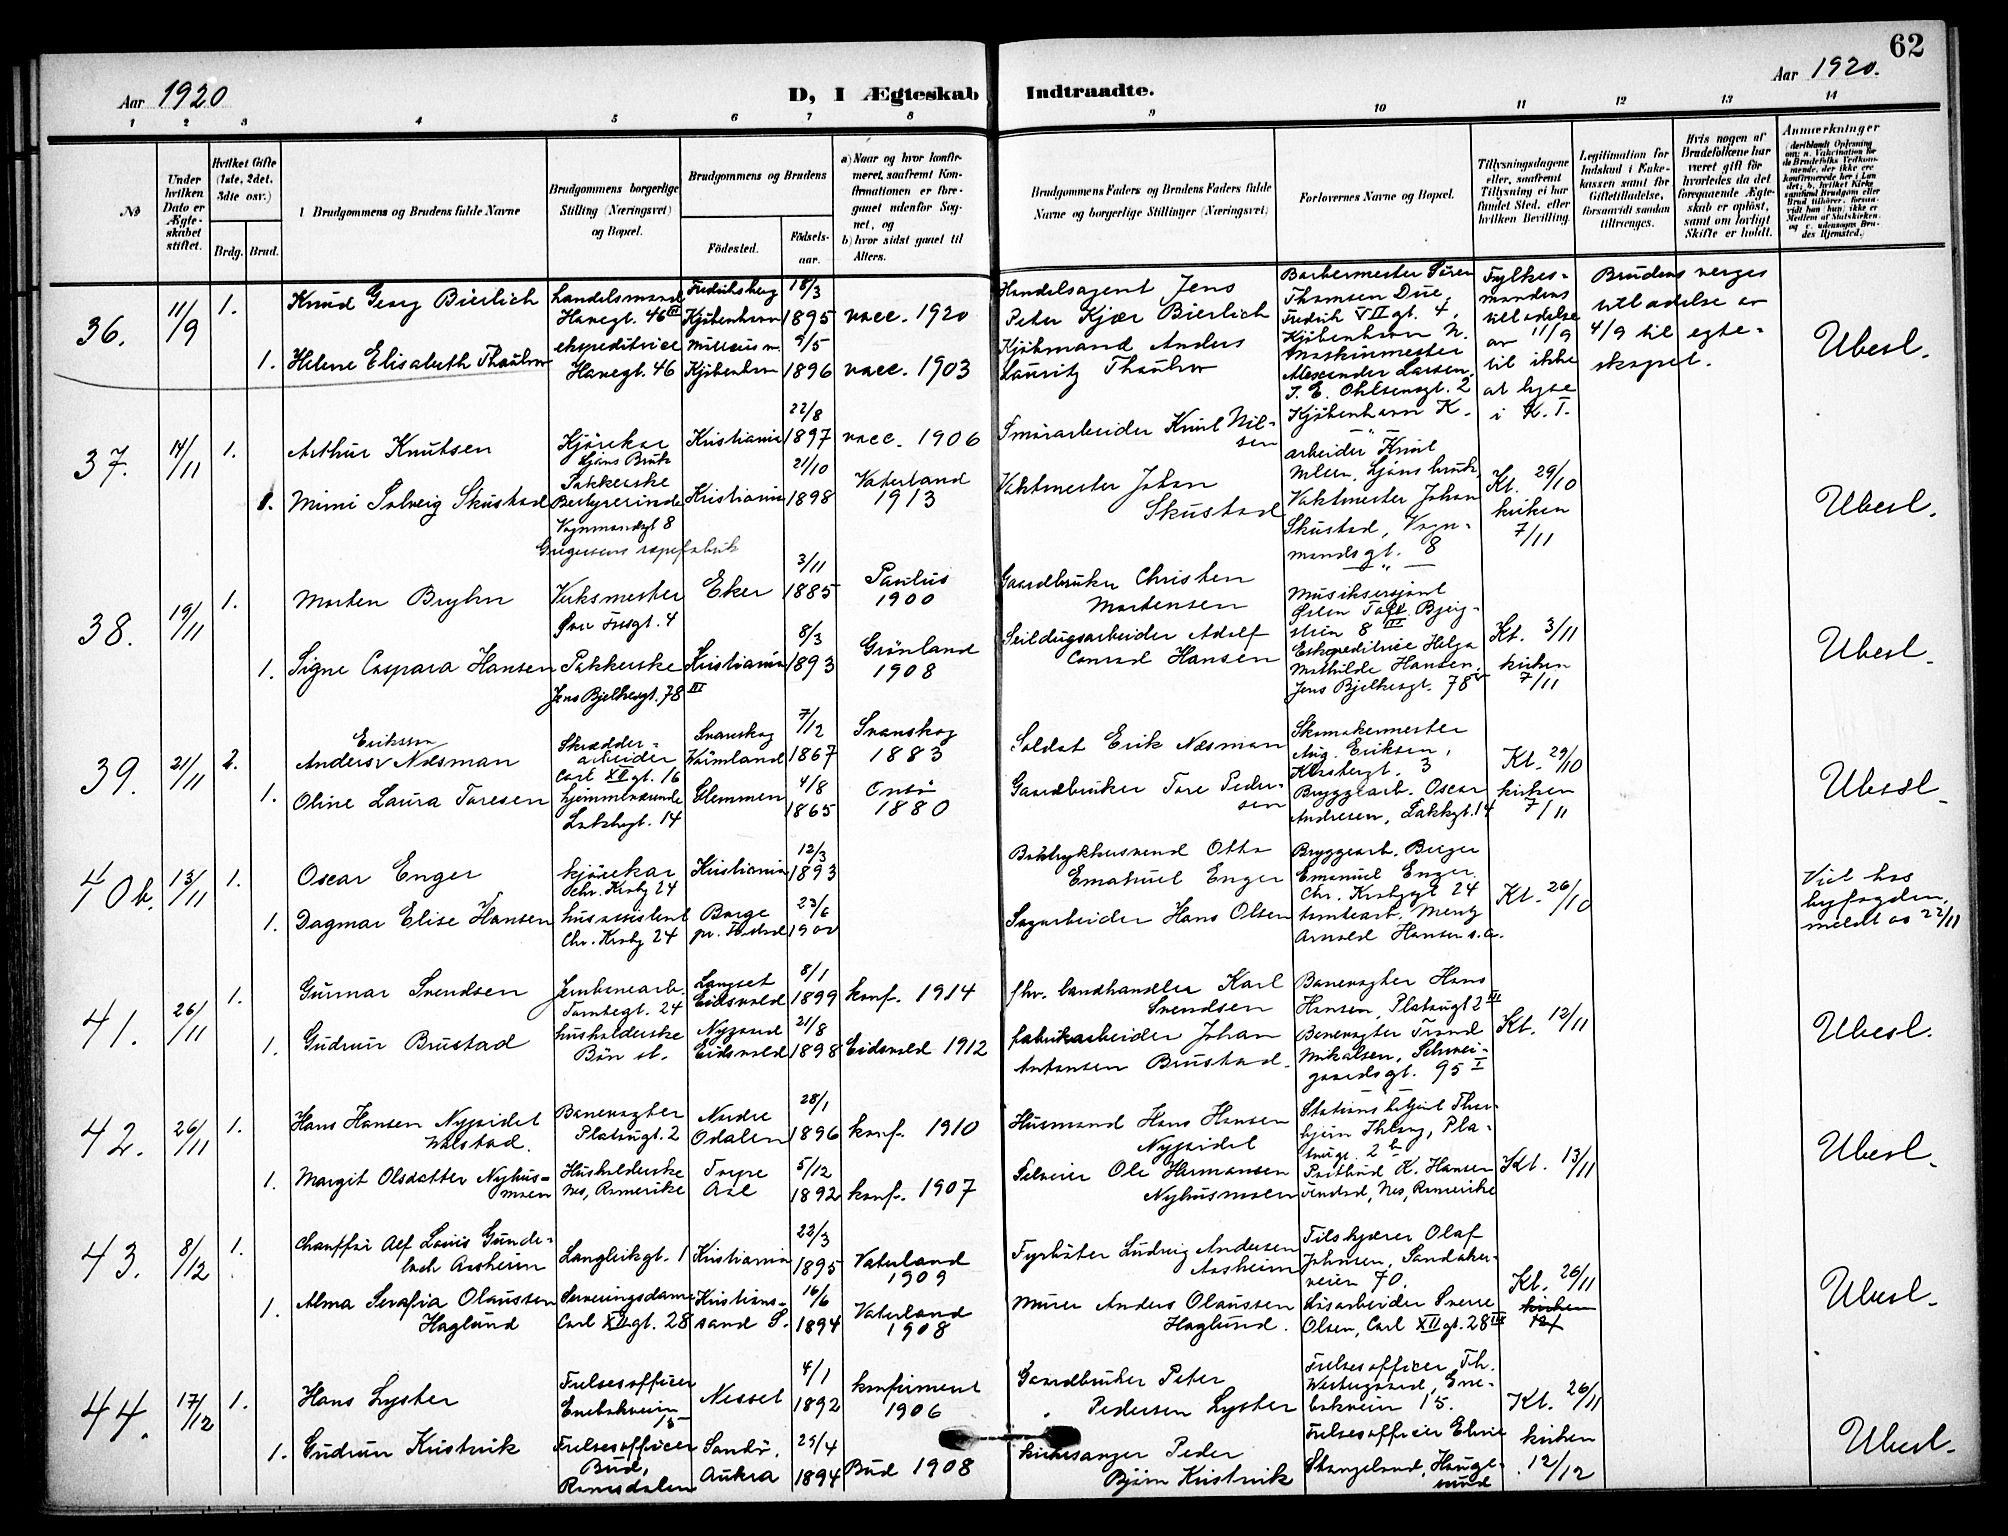 62
Aar 1920
D, I Ægteskab Indtraadte.
Aar 1920.
1 2 3 4 5 6 7 8 9 10 11 12 13 14
No
Under hvilken Dato er Ægteskabet stiftet.
Hvilket Gifte (1ste, 2det, 3dte osv.)
Brdg. Brud.
Brudgommens og Brudens fulde Navne
Brudgommens borgerlige Stilling (Næringsvei) og Bopæl.
Brudgommens og Brudens
Fødested.
Fødsels-aar.
a) Naar og hvor konfirmeret, saafremt Konfirmationen er foregaaet udenfor Sognet, og
b) hvor sidst gaaet til Alters.
Brudgommens Faders og Brudens Faders fulde Navne og borgerlige Stillinger (Næringsvei)
Forlovernes Navne og Bopæl.
Tillysningsdagene eller, saafremt Tillysning ei har fundet Sted, efter hvilken Bevilling.
Legitimation for Indskud i Enkekassen samt for Giftetilladelse, forsaavidt saadan tiltrænges.
Hvis nogen af Brudefolkene har været gift før hvorledes da det foregaaende Ægteskab er opløst, samt om lovligt Skifte er holdt.
Anmerkninger
36. 11/9 1. Knud Georg Bierlich
Handelsmand Havegt. 46 III
Fredriksberg Kjöbenhavn 18/3 1895 vacc. 1920
Handelsagent Jens Peter Kjær Bierlich
Barbermester Sören Thomsen Due, Fredrik VII gt. 4, Kjöbenhavn N.
Fylkesmandens tilladelse av 11/9 til ikke at lyse i K. T.
Brudens verges tilladelse av 4/9 til egteskapet.
Ubesl.
1. Helene Elisabeth Thaulow
ekspeditrice Havegt. 46
Kjöbenhavn 9/5 1896 vacc. 1903
Kjöbmand Anders Lauritz Thaulow
Maskinmester Alexander Larsen, J. E. Ohlsensgt. 2 Kjöbenhavn K.
37. 14/11 1. Arthur Knutsen
Kjörekar Ljans Bruk
Kristiania 22/8 1897 vacc. 1906
Smörarbeider Knut Nilsen
arbeider Knut Ljans bruk
Kt. 29/10 kirken 7/11
Ubesl.
1. Mimi Solveig Skustad
Pakkerske Vognmandsgt 8
Kristiania 21/10 1898 Vaterland 1913
Vaktmester Johan Skustad
Vaktmester Johan Skustad, Vognmandsgt. 8
38. 19/11 1. Morten Bryhn
Gregersens fabrik
Verksmester
Eker 3/11 1885 Paulus 1900
Gaardbruker Christen Mortensen
Musiksersjant
Kt. 3/11 kirken 7/11
Ubesl.
1. Signe Caspara Hansen
Pakkerske Jens Bjelkesgt. 78 III
Kristiania 8/3 1893 Grönland 1908
Seildugsarbeider Adolf Conrad Hansen
Ekspeditrice Helga Mathilde Hansen, Jens Bjelkesgt. 78
39. 21/11 2. Anders Eriksson Næsman
Skrædderarbeider Carl XII gt. 16
Svanskog Värmland 7/12 1867 Svanskog 1883
Soldat Erik Næsman
Skomakermester Aug. Eriksen,
Kt. 29/10 kirken 7/11
Ubesl.
1. Oline Laura Toresen
hjemmeværende Lakkegt. 14
Glemmen 4/8 1865 Onsö 1880
Gaardbruker Tore Pedersen
Bryggearb. Oscar Andresen, Lakkgt. 14
40b. 13/11 1. Oscar Enger
kjörekar Chr. Krohg 24
Kristiania 12/3 1893
Boktrykkersvend Otto Emanuel Enger
Bryggearb. Birger Emanuel Enger. Chr. Krohgsgt 24
Kt. 26/10
Viet hos byfogden, meldt os 22/11
1. Dagmar Elise Hansen
husassistent Chr. Krohg 24
Borge 23/6 1900
Sagarbeider Hans Olsen
tomtearb. Mentz Arnold Hansen s.a.
41. 26/11 1. Gunnar Svendsen
Jernbanearb. Tomtegt. 24
Langset Eidsvold 8/1 1899 konf. 1914
fhv. landhandler Karl Svendsen
Banevagter Hans Hansen, Platougt 2 III
Kt. 12/11
Ubesl.
1. Gudrun Brustad
husholderske Bön st.
Nygaard Eidsvold 21/8 1898 Eidsvold 1912
fabrikarbeider Johan Antonsen Brustad.
Banevagter Trond Mikalsen, Schweigaardsgt. 95 I
42. 26/11 1. Hans Hansen Nygeidet Wilstad.
Banevagter Platougt. 2
Nordre Odalen 28/1 1896 konf. 1910
Husmand Hans Hansen Nygeidet
Kt. 13/11
Ubesl.
1. Margit Olsdatter Nyhusmoen
Husholderske Nes, Romerike
Torpe Aal 5/12 1892 konf. 1907
Selveier Ole Hermansen Nyhusmoen
Postbud K. Hansen Nes, Romerike
43. 8/12 1. Chauffør Alf Louis Gundelach Aasheim
Langleikgt. 1
Kristiania 22/3 1895 Vaterland 1909
Fyrböter Ludvig Andersen Aasheim
Olaf Johnsen, Sandakerveien 70.
Kt. 26/11 kirken
Ubesl.
1. Alma Serafia Olaussen Haglund
Serveringsdame Carl XII gt. 28
Kristianssand S. 16/6 1894 Vaterland 1908
Murer Anders Olaussen Haglund.
Sverre Olsen, Carl XII gt. 28 III
44. 17/12 1. Hans Lyster
Frelsesofficer Enebakveien 15
Nesset 4/1 1892 konfirmert 1906
Gaardbruker Peter Pedersen Lyster
Frelsesofficer Th. Westergaard, Enebakveien 15.
Kt. 26/11 kirken 12/12
Ubesl.
1. Gudrun Kristvik
Frelsesofficer Bud, Romsdalen
Sandö, Aukra 25/4 1894 Bud 1908
kirkesanger Peder Björn Kristvik
Frelsesofficer Stangeland, Haugesund